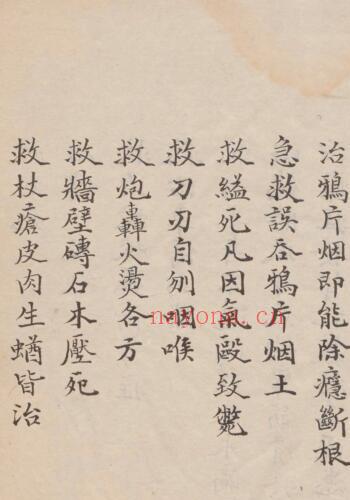 治鴉片烟即能除癮斷根
急救誤吞鴉片烟土
救縊死凡因氣毆致斃
救刀刃自刎咽喉
救炮轟火燙各方
救牆壁磚石木壓死
救杖瘡皮肉生蛆皆治
nayona.cn